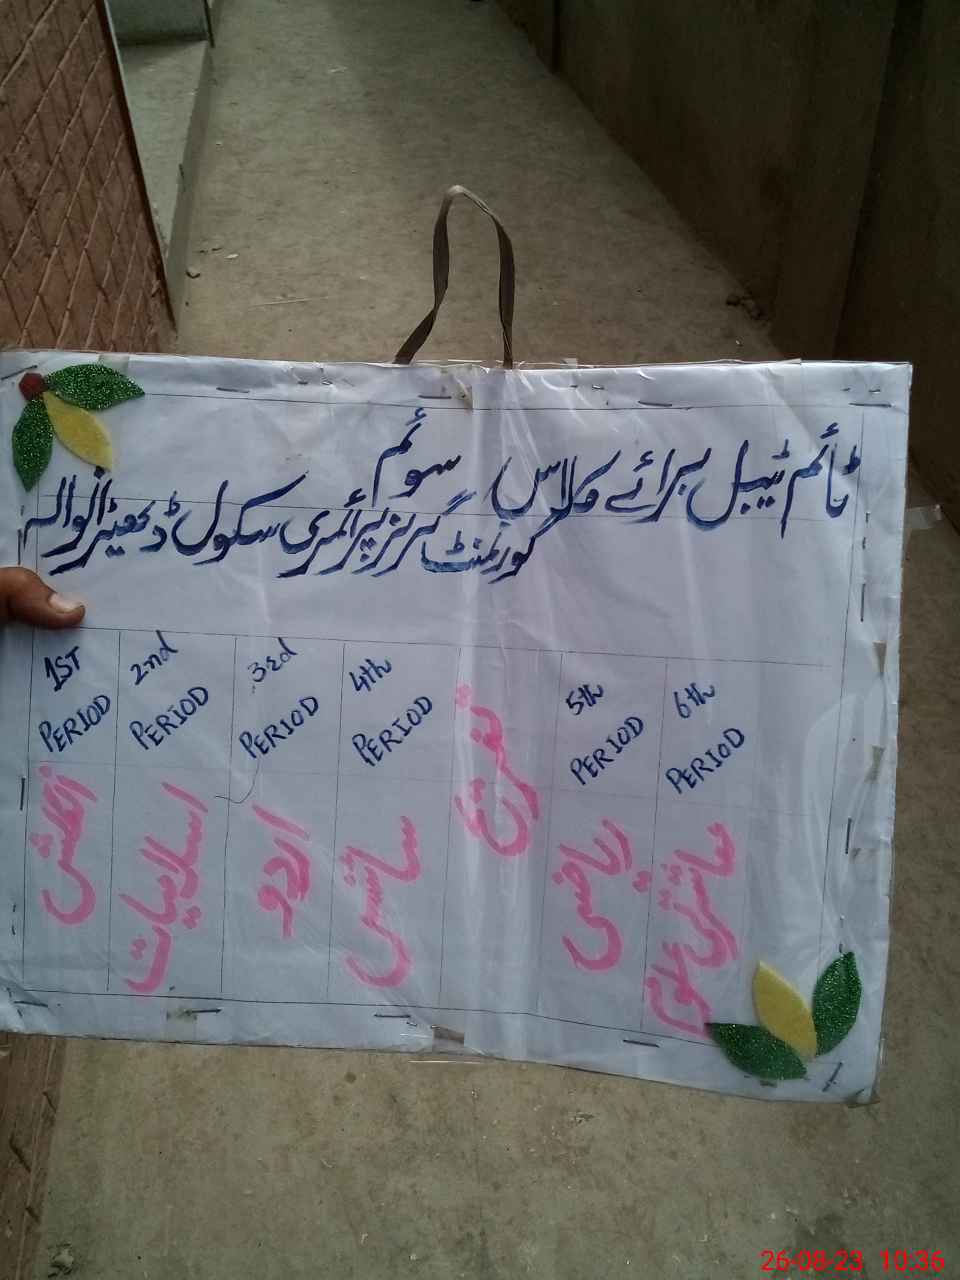 ٹائم ٹیبل برائے کلاس سوئم
گورنمنٹ گرلز پرائمری سکول ڈھیڈانوالہ
1ST PERIOD
2nd PERIOD
3rd PERIOD
4th PERIOD
5th PERIOD
6th PERIOD
انگلش
اسلامیات
اردو
سائنس
تفریح
ریاضی
معاشرتی علوم
26-08-23 10:36